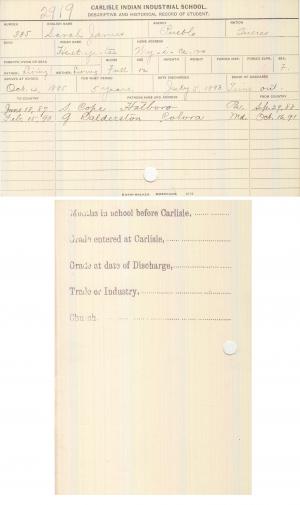 2919
CARLISLE INDIAN INDUSTRIAL SCHOOL.
DESCRIPTIVE AND HISTORICAL RECORD OF STUDENT.
NUMBER ENGLISH NAME AGENCY NATION
Sarah James Pueblo
BAND INDIAN NAME HOME ADDRESS
PARENTS LIVING OR DEAD BLOOD AGE HEIGHT WEIGHT FORCED INSP. FORCED EXPR. SEX
FATHER, Living MOTHER, Living Full 12 F.
ARRIVED AT SCHOOL FOR WHAT PERIOD DATE DISCHARGED CAUSE OF DISCHARGE
5 years July 5, 1893 Time out
TO COUNTRY PATRONS NAME AND ADDRESS FROM COUNTRY
June 18, 87 S. Cope Hatboro Pa.
Feb. 15, 90 G Balderston Colora Md. Oct. 16, 91
Months in school before Carlisle,
Grade entered at Carlisle,
Grade at date of Discharge,
Trade or Industry.
Church.